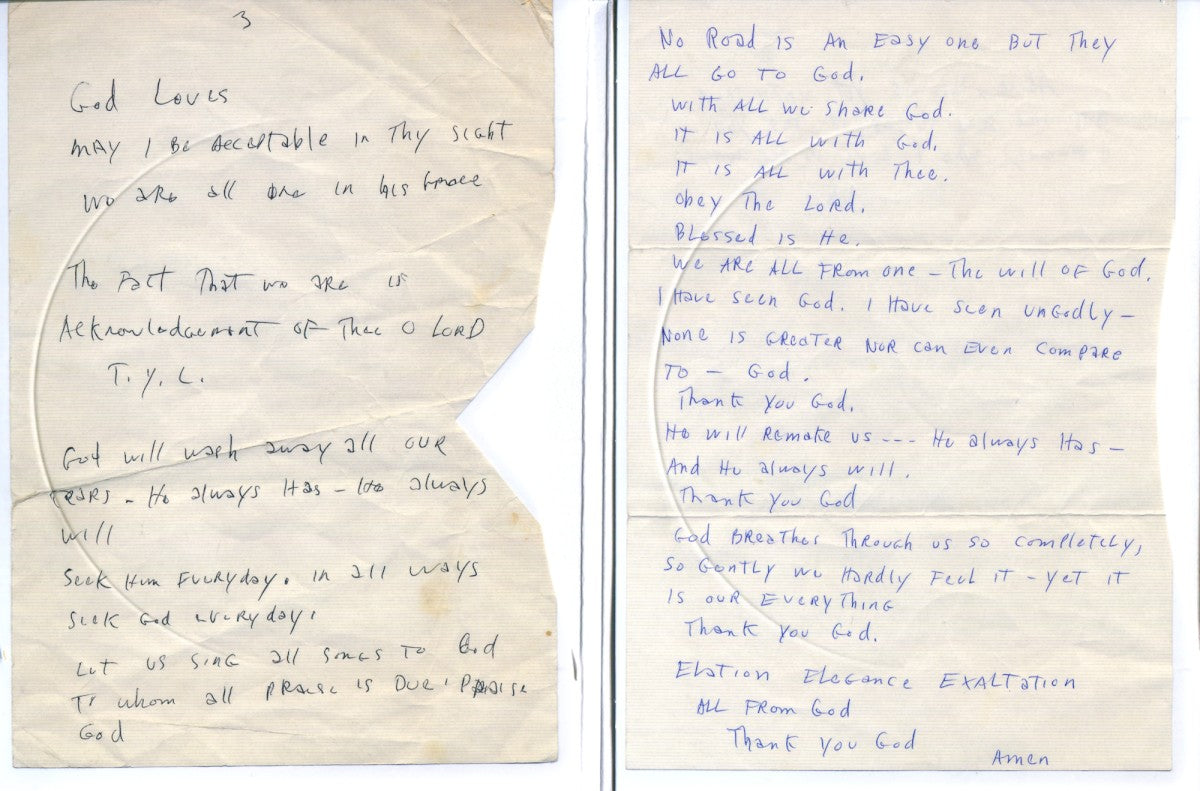 3
God Loves
MAY I Be Acceptable in Thy Sight
We are all one in his Grace
The Fact That we are is
Acknowledgement of Thee O LORD
T. Y. L.
God will wash away all OUR
TEARS - He always Has - He always
will
Seek Him Everyday. in all ways
seek God everyday.
Let us sing all songs To God
To whom all PRAise is Due. PRAise
God
No Road is An Easy one But They
ALL Go To God.
With ALL we share God.
IT IS ALL with God.
IT IS ALL with Thee.
Obey The Lord.
Blessed is He.
We ARE ALL From one - The will of God.
I Have seen God. I Have seen ungodly -
None is GREATER NOR can Even Compare
To - God.
Thank You God.
He will Remake us --- He always Has -
And He always will.
Thank You God
God BReathes Through us so completely,
So Gently we Hardly Feel it - yet it
is our EVERYTHING
Thank You God.
Elation Elegance EXALTation
ALL From God
Thank you God
Amen